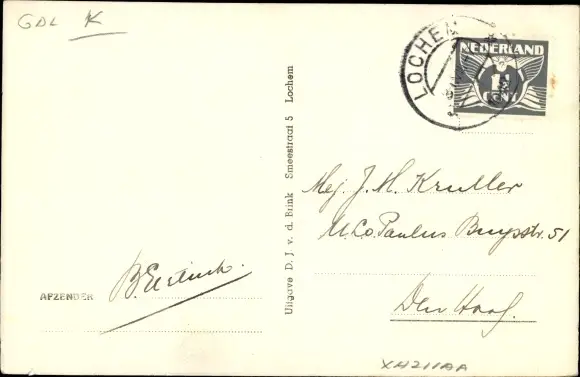 GDL K
LOCHEM
NEDERLAND
1½
CENT
Uitgave D. J. v. d. Brink Smeestraat 5 Lochem
Mej. J. M. Kruller
Paulus Buysstr. 51
Den Haag.
AFZENDER B.
XH211AA